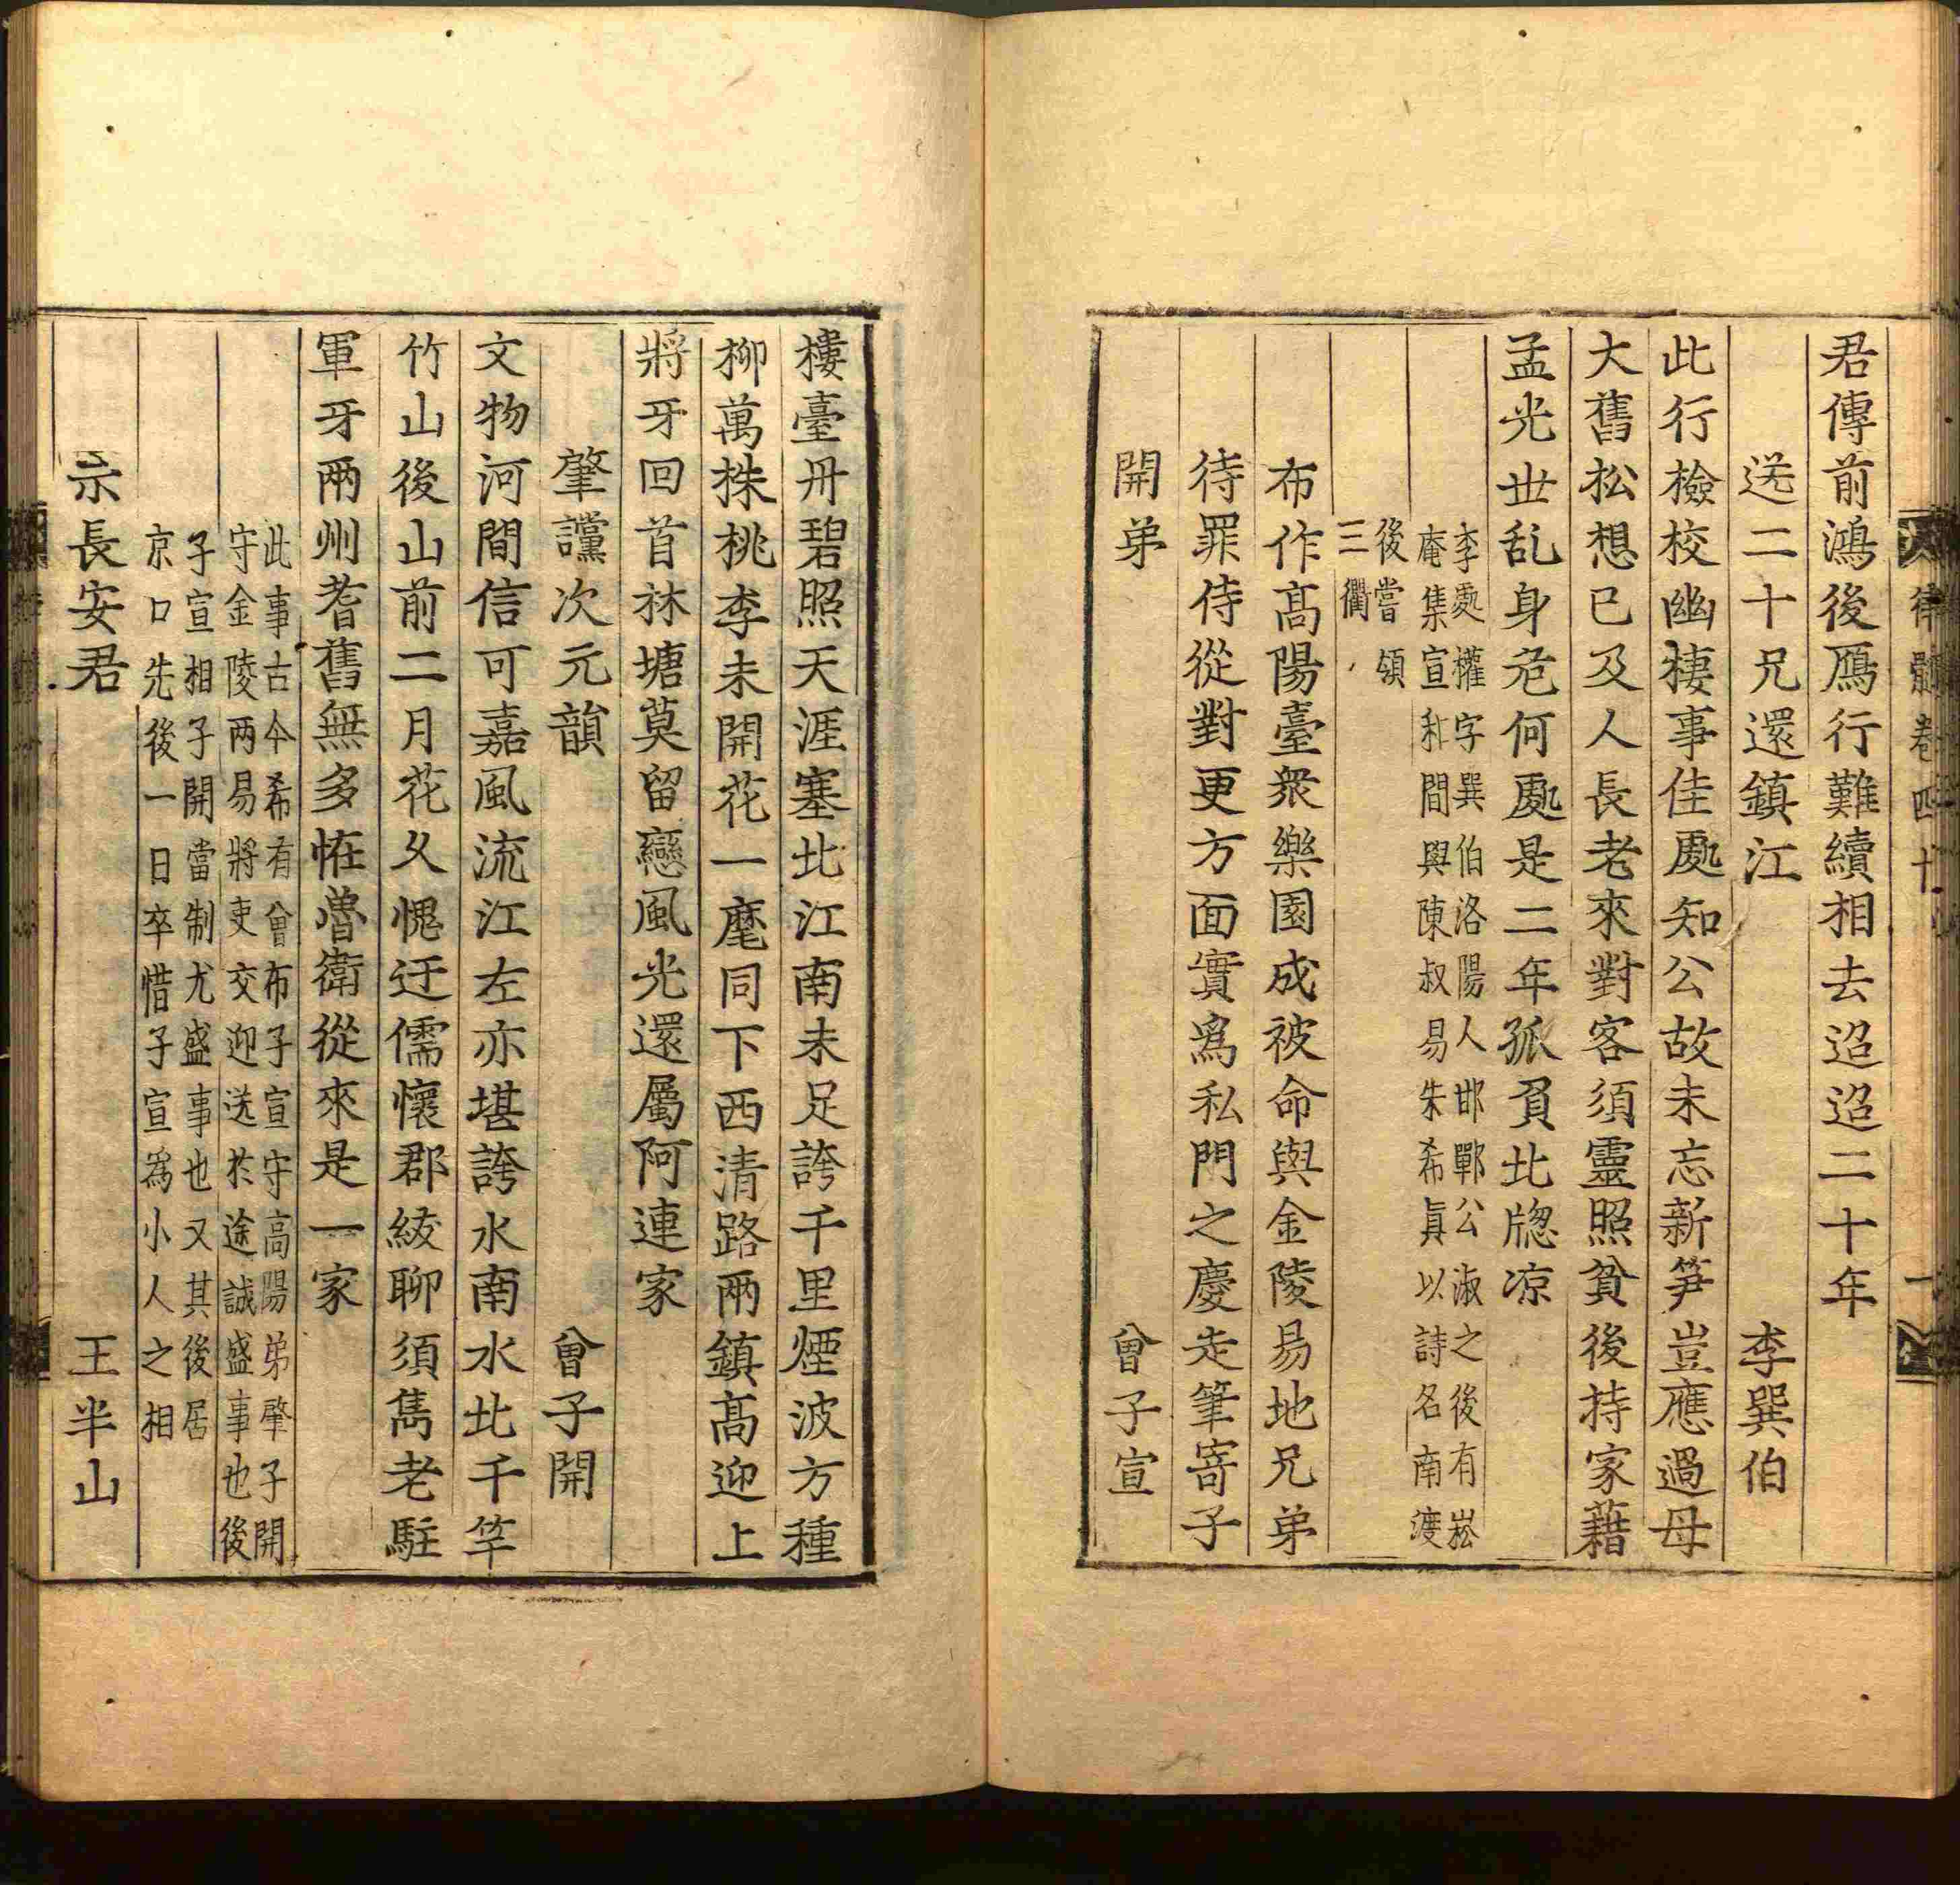 律髓卷四十 一
君傳前鴻後鴈行難續相去迢迢二十年
送二十兄還鎮江 李巽伯
此行檢校幽棲事佳處知公故未忘新笋豈應過母
大舊松想已及人長老來對客須靈照貧後持家藉
孟光世乱身危何處是二年孤負北牕凉
李處權字巽伯洛陽人邯鄲公淑之後有崧
庵集宣和間與陳叔易朱希眞以詩名南渡
後嘗領
三衢
布作高陽臺衆樂園成被命與金陵易地兄弟
待罪侍從對更方面實爲私門之慶走筆寄子
開弟 曾子宣
樓臺丹碧照天涯塞北江南未足誇千里煙波方種
柳萬株桃李未開花一麾同下西清路兩鎮高迎上
將牙回首林塘莫留戀風光還屬阿連家
肇讜次元韻 曾子開
文物河間信可嘉風流江左亦堪誇水南水北千竿
竹山後山前二月花久愧迂儒懷郡紱聊須雋老駐
軍牙兩州耆舊無多恠魯衛從來是一家
此事古今希有曾布子宣守高陽弟肇子開
守金陵两易將吏交迎送於途誠盛事也後
子宣相子開當制尤盛事也又其後居
京口先後一日卒惜子宣為小人之相
示長安君 王半山